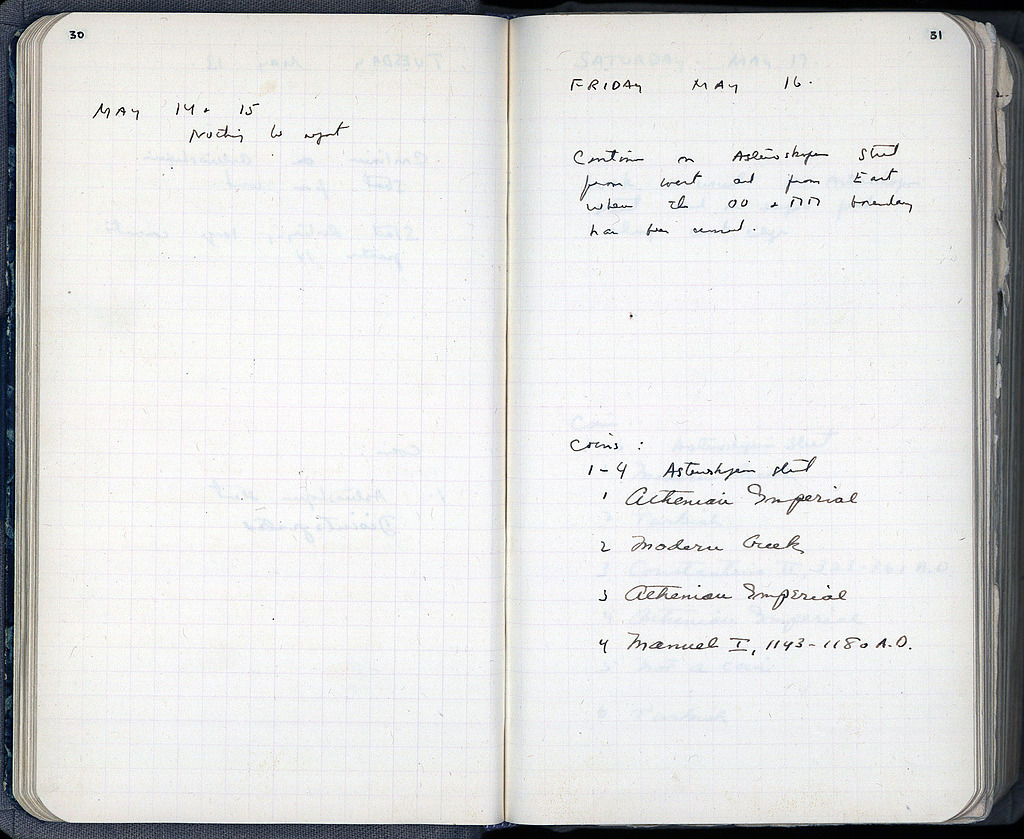 30
MAY 14 + 15
Nothing to report
31
FRIDAY MAY 16.
Continue on Asteroskopeion Street
from west and from East
where the OO + ΠΠ boundary
has been removed.
Coins :
1-4 Asteroskopeion street
1 Athenian Imperial
2 Modern Greek
3 Athenian Imperial
4 Manuel I, 1143-1180 A.D.